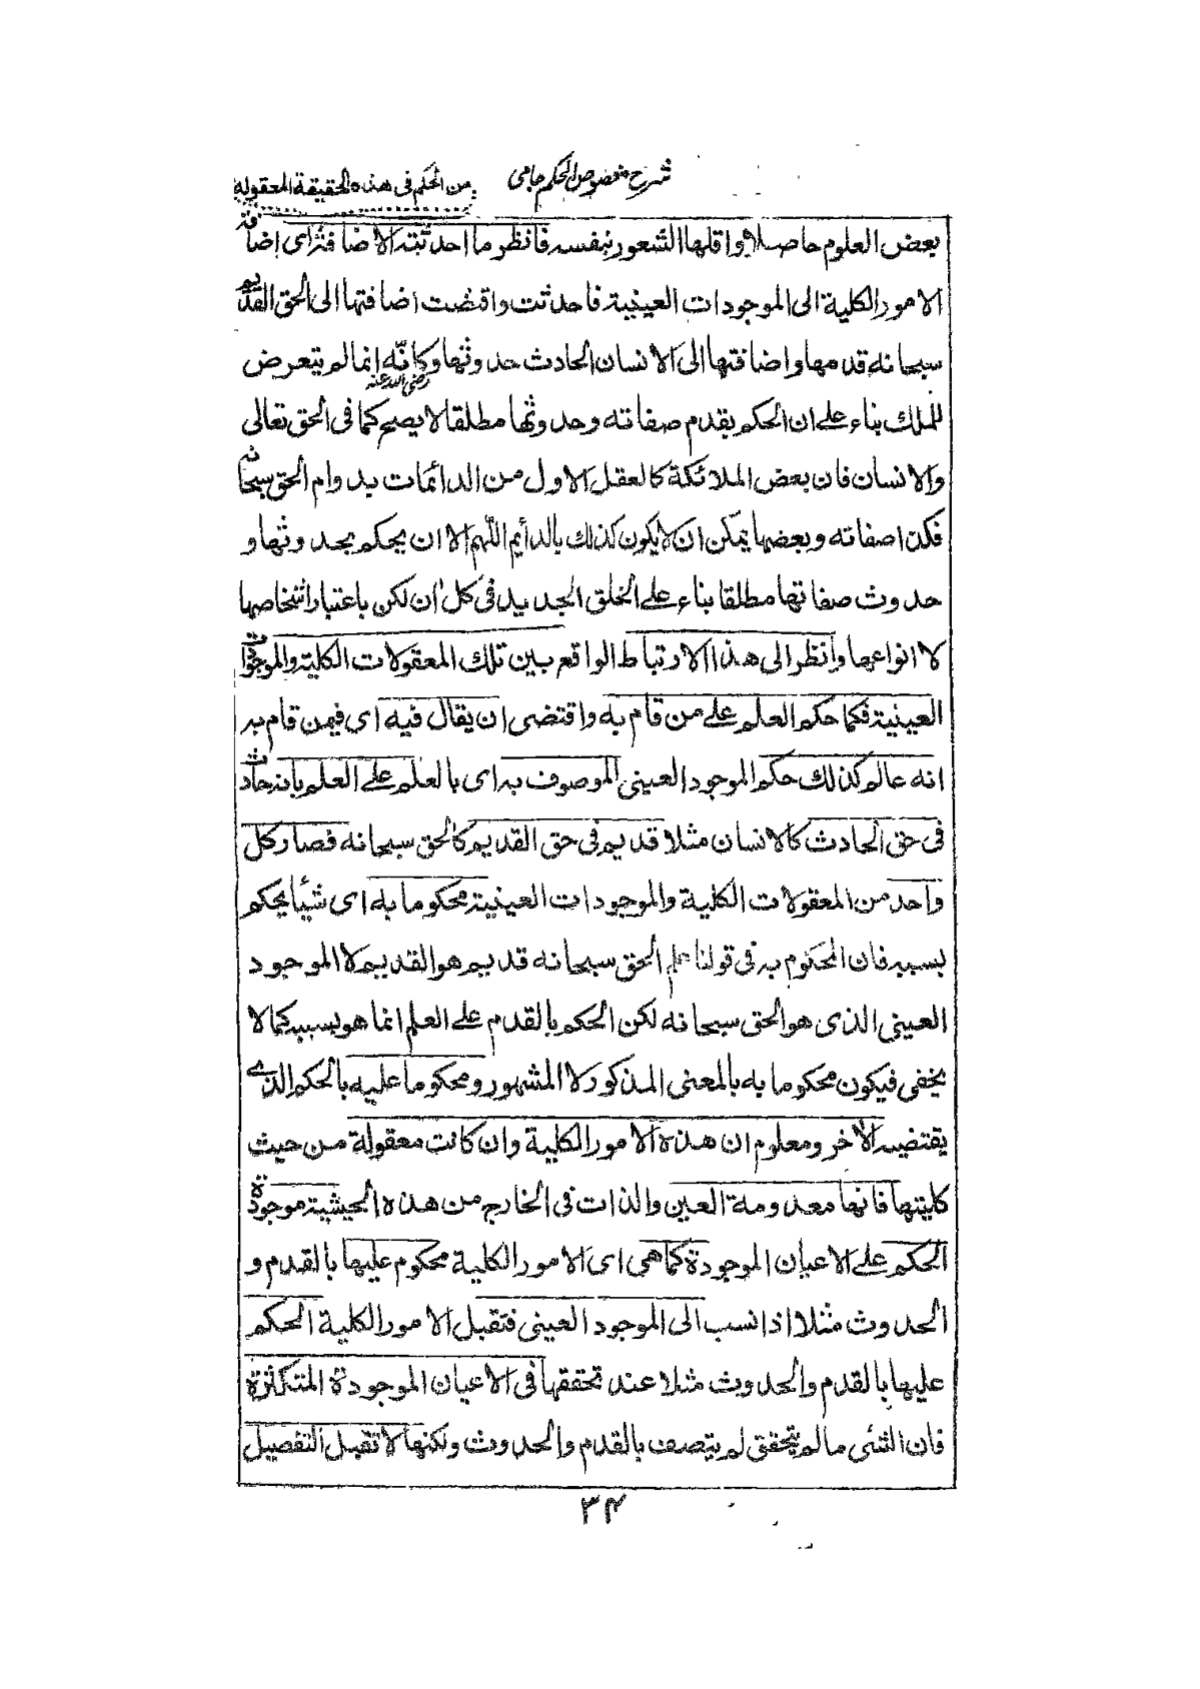 شرح فصوص الحكم جامى
من الحكم فى هذه الحقيقة المعقولة
بعض العلوم حاصلا واقلها الشعور بنفسه فانظر ما احدثته الاضافة اى اضافة
الامور الكلية الى الموجودات العينية فاحدثت واقتضت اضافتها الى الحق القديم
سبحانه قدمها واضافتها الى الانسان الحادث حدوثها وكانّه رضى الله عنه انما لم يتعرض
للملك بناء على ان الحكم بقدم صفاته وحدوثها مطلقا لا يصح كما فى الحق تعالى
والانسان فان بعض الملائكة كالعقل الاول من الدائمات بدوام الحق سبحانه
فكذا صفاته وبعضها يمكن ان لا يكون كذلك بالدائم اللّهم الا ان يحكم بحدوثها و
حدوث صفاتها مطلقا بناء على الخلق الجديد فى كل ان لكن باعتبار اشخاصها
لا انواعها وانظر الى هذا الارتباط الواقع بين تلك المعقولات الكلية والموجودات
العينية فكما حكم العلم على من قام به واقتضى ان يقال فيه اى فيمن قام به
انه عالم كذلك حكم الموجود العينى الموصوف به اى بالعلم على العلم بانه حادث
فى حق الحادث كالانسان مثلا قديم فى حق القديم كالحق سبحانه فصار كل
واحد من المعقولات الكلية والموجودات العينية محكوما به اى شيئا يحكم
بسببه فان المحكوم به فى قولنا علم الحق سبحانه قديم هو القديم لا الموجود
العينى الذى هو الحق سبحانه لكن الحكم بالقدم على العلم انما هو بسببه كما لا
يخفى فيكون محكوما به بالمعنى المذكور لا المشهور ومحكوما عليه بالحكم الذے
يقتضيه الاخر ومعلوم ان هذه الامور الكلية وان كانت معقولة من حيث
كليتها فانها معدومة العين والذات فى الخارج من هذه الحيثية موجودة
الحكم على الاعيان الموجودة كما هى اى الامور الكلية محكوم عليها بالقدم و
الحدوث مثلا اذا نسب الى الموجود العينى فتقبل الامور الكلية الحكم
عليها بالقدم والحدوث مثلا عند تحققها فى الاعيان الموجودة المتكثرة
فان الشئى ما لم يتحقق لم يتصف بالقدم والحدوث ولكنها لا تقبل التفصيل
۳۴